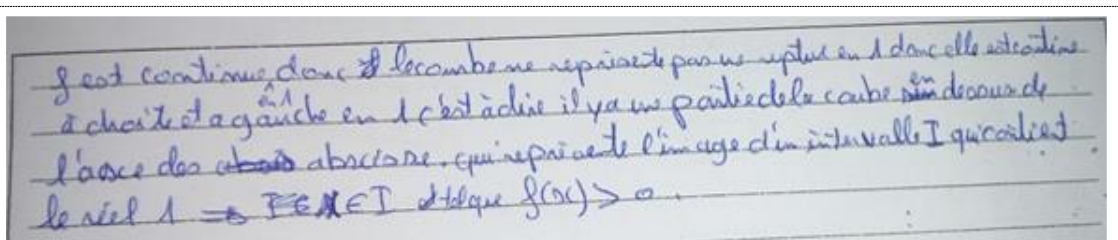 f est continue donc lecombe ne reprisente pas us uptur en 1 donc elle estcontine
à droite et a gâuche en 1 en 1 c'est à dire il ya une partiedela coube en dessus de
l'axce des absciase. qui reprisente l'image d'un intervalle I qui contient
le riel 1 ⇒ x∈I et tel que f(x) > 0.